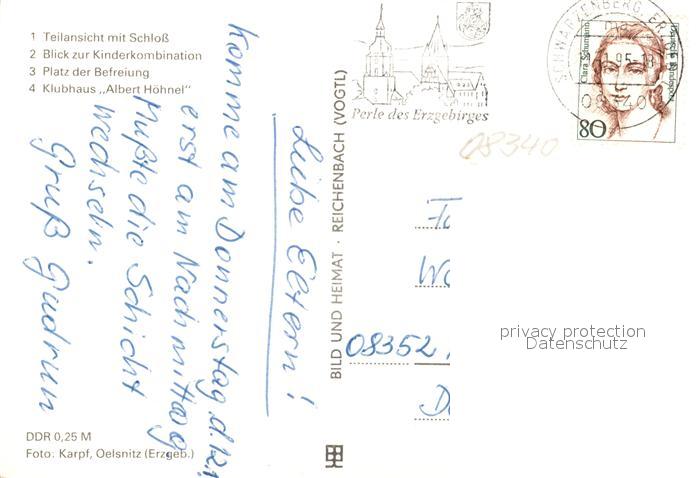 1 Teilansicht mit Schloß
2 Blick zur Kinderkombination
3 Platz der Befreiung
4 Klubhaus „Albert Höhnel"
Liebe Eltern!
Komme am Donnerstag d. 12.1
erst am Nachmittag
Mußte die Schicht
wechseln.
Gruß Gudrun
DDR 0,25 M
Foto: Karpf, Oelsnitz (Erzgeb.)
BILD UND HEIMAT · REICHENBACH (VOGTL)
Perle des Erzgebirges
SCHWARZENBERG, ERZGEB
08340
Clara Schumann
Deutsche Bundespost
80
08340
08352
privacy protection
Datenschutz